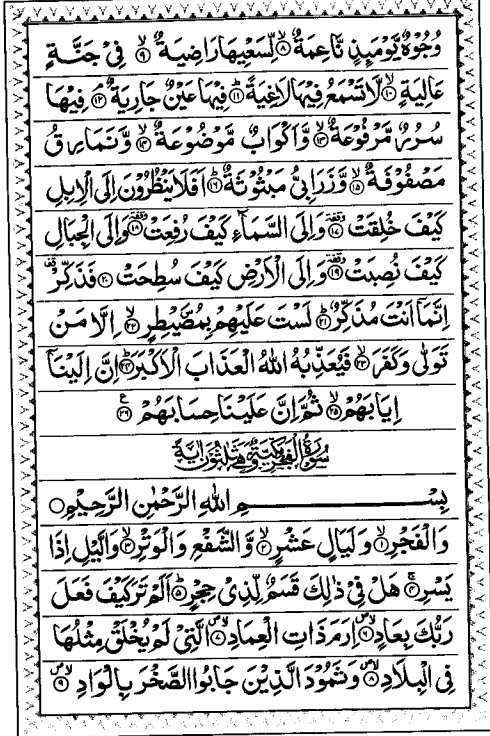 وُجُوْهٌ يَّوْمَىِٕذٍ نَّاعِمَةٌ ۙ﴿۸﴾ لِّسَعْيِهَا رَاضِيَةٌ ۙ﴿۹﴾ فِيْ جَنَّةٍ
عَالِيَةٍ ۙ﴿۱۰﴾ لَّا تَسْمَعُ فِيْهَا لَاغِيَةً ؕ﴿۱۱﴾ فِيْهَا عَيْنٌ جَارِيَةٌ ۘ﴿۱۲﴾ فِيْهَا
سُرُرٌ مَّرْفُوْعَةٌ ۙ﴿۱۳﴾ وَّاَكْوَابٌ مَّوْضُوْعَةٌ ۙ﴿۱۴﴾ وَّنَمَارِقُ
مَصْفُوْفَةٌ ۙ﴿۱۵﴾ وَّزَرَابِيُّ مَبْثُوْثَةٌ ؕ﴿۱۶﴾ اَفَلَا يَنْظُرُوْنَ اِلَى الْاِبِلِ
كَيْفَ خُلِقَتْ ﴿۱۷﴾ وَاِلَى السَّمَآءِ كَيْفَ رُفِعَتْ ﴿۱۸﴾ وَاِلَى الْجِبَالِ
كَيْفَ نُصِبَتْ ﴿۱۹﴾ وَاِلَى الْاَرْضِ كَيْفَ سُطِحَتْ ﴿۲۰﴾ فَذَكِّرْ
اِنَّمَاۤ اَنْتَ مُذَكِّرٌ ؕ﴿۲۱﴾ لَسْتَ عَلَيْهِمْ بِمُصَۜيْطِرٍ ۙ﴿۲۲﴾ اِلَّا مَنْ
تَوَلّٰى وَكَفَرَ ۙ﴿۲۳﴾ فَيُعَذِّبُهُ اللّٰهُ الْعَذَابَ الْاَكْبَرَ ؕ﴿۲۴﴾ اِنَّ اِلَيْنَاۤ
اِيَابَهُمْ ۙ﴿۲۵﴾ ثُمَّ اِنَّ عَلَيْنَا حِسَابَهُمْ ﴿۲۶﴾
سُوْرَةُ الْفَجْرِ مَكِّيَّةٌ وَّهِيَ ثَلٰثُوْنَ اٰيَةً
بِسْمِ اللّٰهِ الرَّحْمٰنِ الرَّحِيْمِ
وَالْفَجْرِ ۙ﴿۱﴾ وَلَيَالٍ عَشْرٍ ۙ﴿۲﴾ وَّالشَّفْعِ وَالْوَتْرِ ۙ﴿۳﴾ وَالَّيْلِ اِذَا
يَسْرِ ۚ﴿۴﴾ هَلْ فِيْ ذٰلِكَ قَسَمٌ لِّذِيْ حِجْرٍ ؕ﴿۵﴾ اَلَمْ تَرَ كَيْفَ فَعَلَ
رَبُّكَ بِعَادٍ ﴿۶﴾ اِرَمَ ذَاتِ الْعِمَادِ ﴿۷﴾ الَّتِيْ لَمْ يُخْلَقْ مِثْلُهَا
فِي الْبِلَادِ ﴿۸﴾ وَثَمُوْدَ الَّذِيْنَ جَابُوا الصَّخْرَ بِالْوَادِ ﴿۹﴾